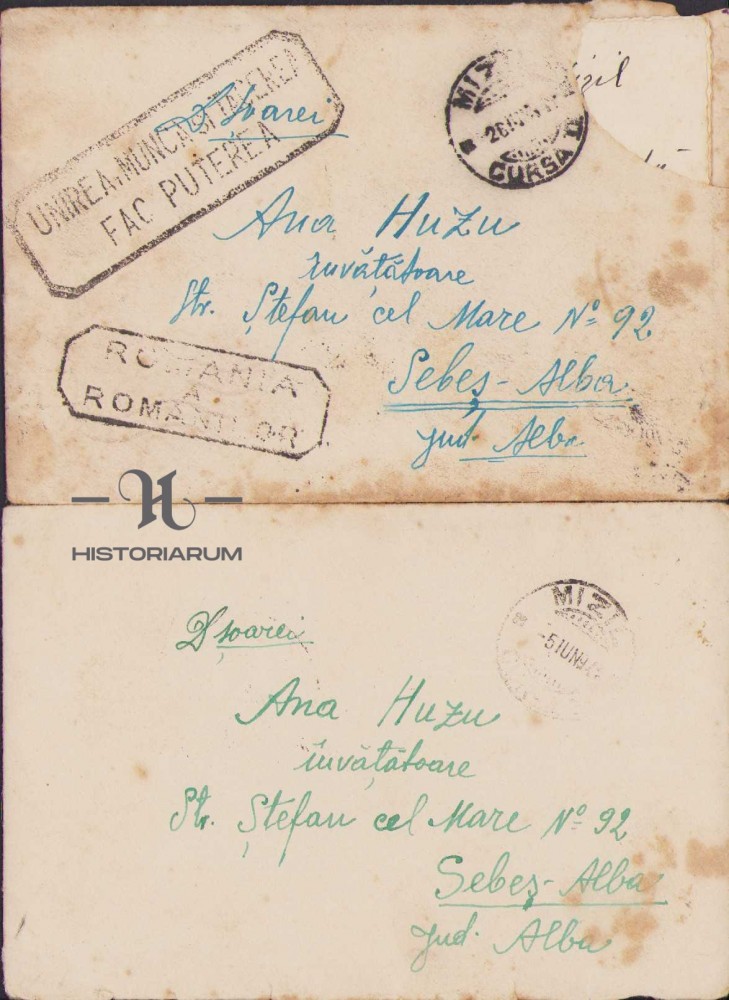 UNIREA, MUNCA ȘI TACEREA
FAC PUTEREA
D șoarei
MIZIL
CURSA II
zil
Ana Huzu
învățătoare
Str. Ștefan cel Mare Nº 92
Sebeș-Alba
jud. Alba
ROMANIA
A
ROMANILOR
HISTORIARUM
D șoarei
MIZIL
-5 IUN 94
Ana Huzu
învățătoare
Str. Ștefan cel Mare Nº 92
Sebeș-Alba
jud. Alba